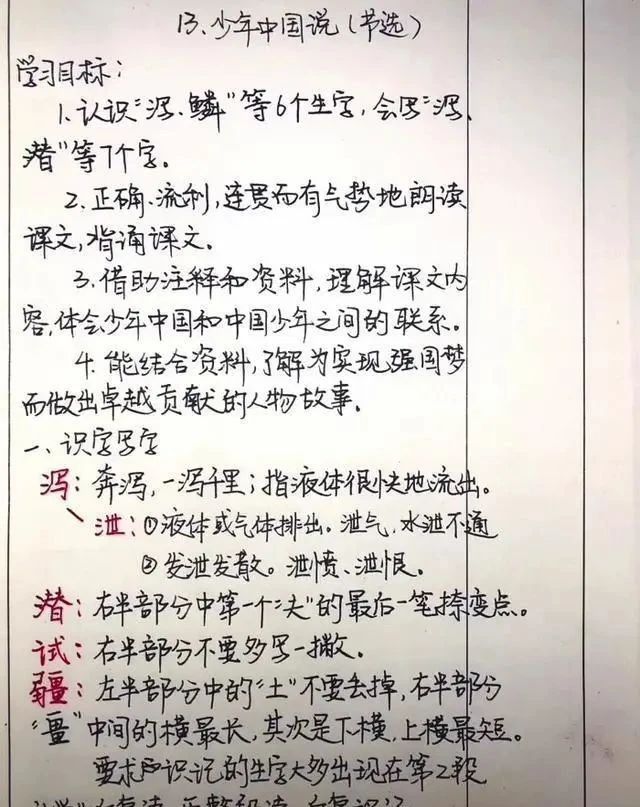 13、少年中国说(节选)
学习目标:
1.认识“泻、鳞”等6个生字,会写“泻、
潜”等7个字。
2.正确、流利,连贯而有气势地朗读
课文,背诵课文。
3.借助注释和资料,理解课文内
容,体会少年中国和中国少年之间的联系。
4.能结合资料,了解为实现强国梦
而做出卓越贡献的人物故事。
一、识字写字
泻:奔泻,一泻千里;指液体很快地流出。
泄:①液体或气体排出。泄气,水泄不通
②发泄发散。泄愤、泄恨。
潜:右半部分中第一个“夫”的最后一笔捺变点。
试:右半部分不要多写一撇。
疆:左半部分中的“土”不要丢掉,右半部分
“畺”中间的横最长,其次是下横,上横最短。
要求识记的生字大多出现在第2段